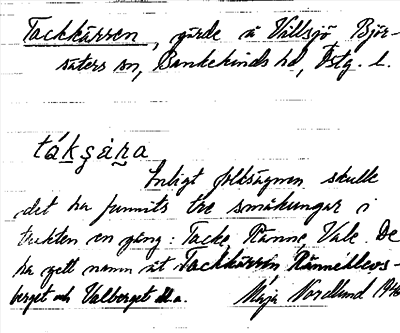 Tackkärren, gärde å Välsjö Björ-
säters sn, Bankekinds hd, Östg. l.
tákşàṉa
Enligt folksägnen skulle
det ha funnits tre småkungar i
trakten en gång: Tacke, Ränne, Vale. De
ha gett namn åt Tackkärrin
berget och Valberget m.
Maja Nordlund